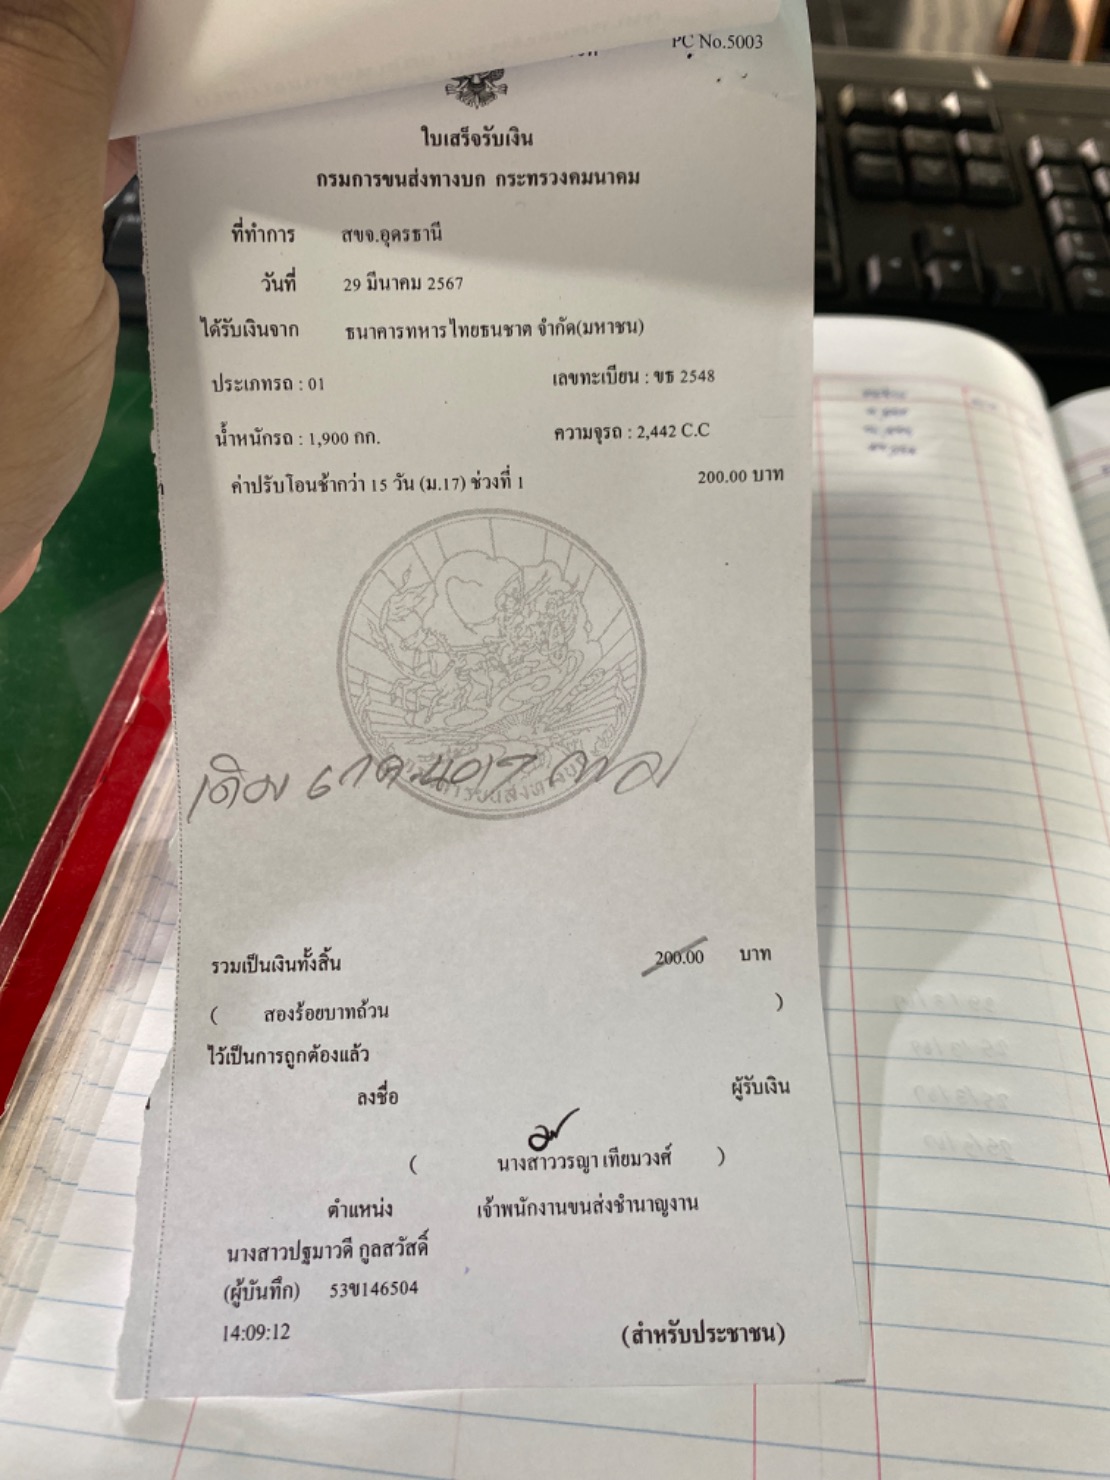 PC No.5003
ใบเสร็จรับเงิน
กรมการขนส่งทางบก กระทรวงคมนาคม
ที่ทำการ สขจ.อุดรธานี
วันที่ 29 มีนาคม 2567
ได้รับเงินจาก ธนาคารทหารไทยธนชาต จำกัด(มหาชน)
ประเภทรถ : 01 เลขทะเบียน : ขธ 2548
น้ำหนักรถ : 1,900 กก. ความจุรถ : 2,442 C.C
ค่าปรับโอนช้ากว่า 15 วัน (ม.17) ช่วงที่ 1 200.00 บาท
เดิม
รวมเป็นเงินทั้งสิ้น 200.00 บาท
( สองร้อยบาทถ้วน )
ไว้เป็นการถูกต้องแล้ว
ลงชื่อ ผู้รับเงิน
( นางสาววรญา เทียมวงศ์ )
ตำแหน่ง เจ้าพนักงานขนส่งชำนาญงาน
นางสาวปฐมาวดี กูลสวัสดิ์
(ผู้บันทึก) 53ข146504
14:09:12 (สำหรับประชาชน)